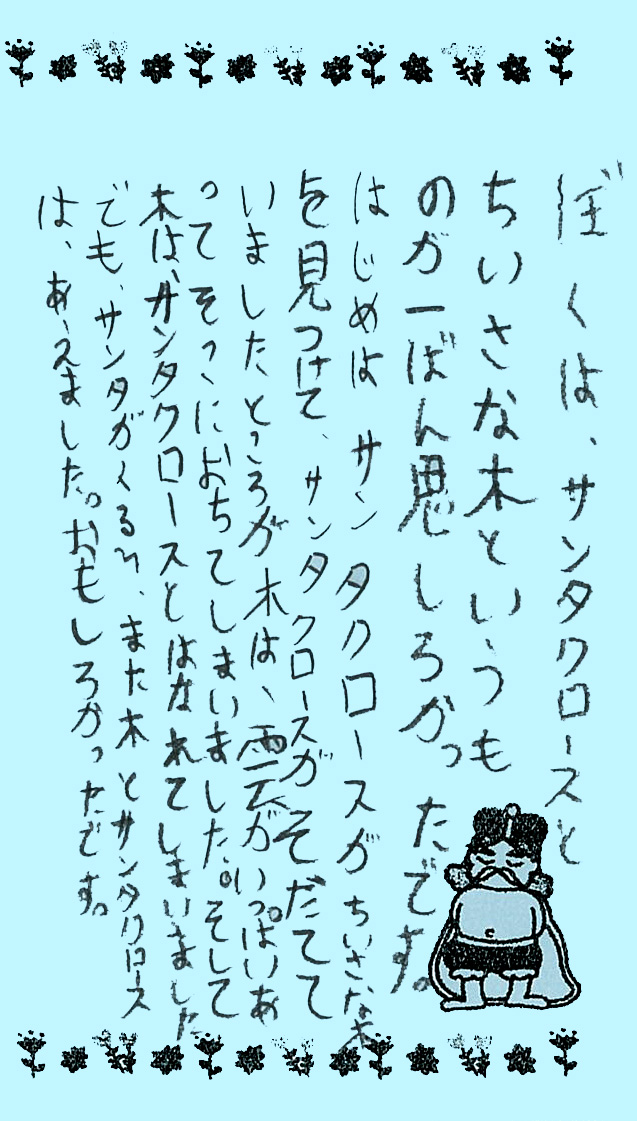 ぼくは、サンタクロースと
ちいさな木といううも
のが一ばん思しろかっ たです。
はじめは サンタクロースが ちいさな木
を見つけて、サンタクロースがそだてて
いました ところが 木は、雲がいっぱいあ
って そこにおちてしまいました。そして
木は、サンタクロースとはなれてしまいました
でも、サンタがくるり、また木とサンタクロース
は、あえました。おもしろかったです。